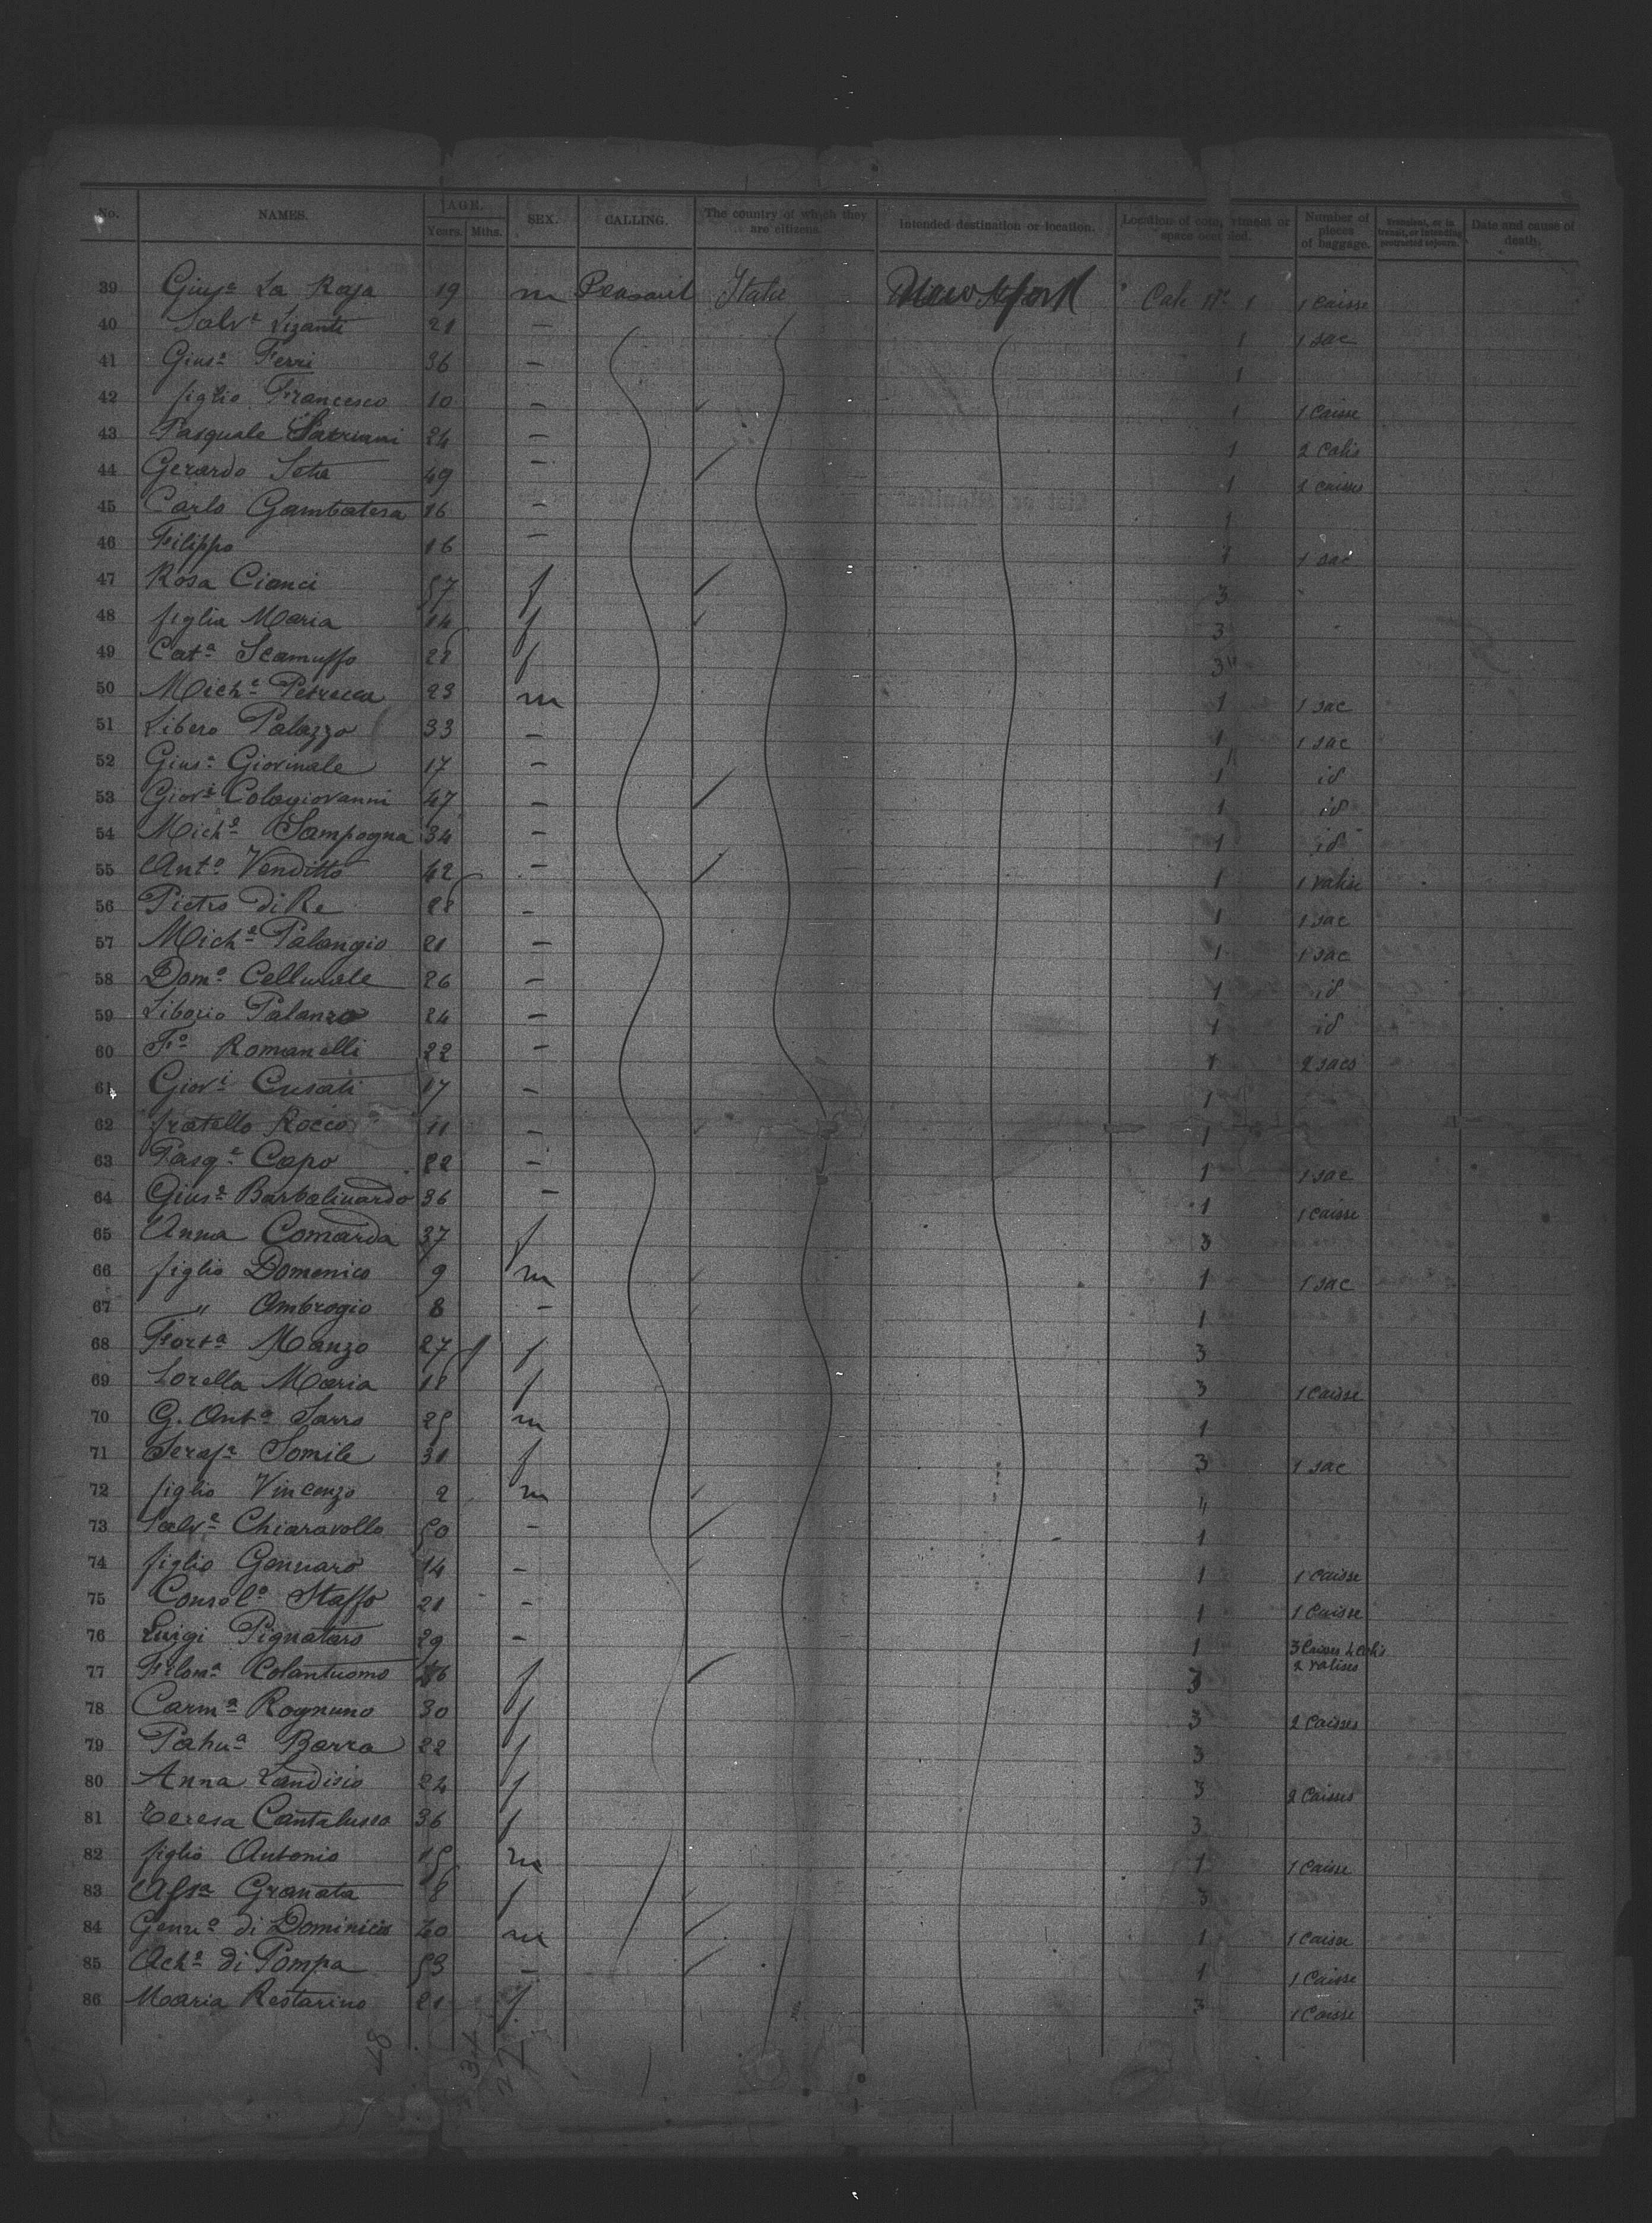 No. NAMES. AGE. Years. Mths. SEX. CALLING. The country of which they are citizens. Intended destination or location. Location of compartment or space occupied. Number of pieces of baggage. Transient, or in transit, or intending protracted sojourn. Date and cause of death.
39 Gius.e La Raja 19 m Peasant Italie New York Cale No. 1 1 caisse
40 Salv.e Lizanti 21 — 1 1 sac
41 Gius.e Ferri 36 — 1
42 figlio Francesco 10 — 1 1 caisse
43 Pasquale Satriani 24 — 1 2 colis
44 Gerardo Seta 49 — 1 2 caisses
45 Carlo Gambatesa 16 — 1
46 Filippo 16 — 1 1 sac
47 Rosa Cianci 57 f 3
48 figlia Maria 14 f 3
49 Cat.a Scamuffo 28 f 3
50 Mich.e Petrecca 23 m 1 1 sac
51 Libero Palazzo 33 — 1 1 sac
52 Gius.e Giovinale 17 — 1 id
53 Giov.i Colagiovanni 47 — 1 id
54 Mich.e Sampogna 34 — 1 id
55 Ant.o Venditto 42 — 1 1 valise
56 Pietro di Re 28 — 1 1 sac
57 Mich.e Palangio 21 — 1 1 sac
58 Dom.o 26 — 1 id
59 Liborio Palanzo 24 — 1 id
60 F.o Romanelli 22 — 1 2 sacs
61 Giov.i Cusati 17 — 1
62 fratello Rocco 11 — 1
63 Pasq.e Capo 22 — 1 1 sac
64 Gius.e Barbalinardo 36 — 1 1 caisse
65 Anna Comarda 37 f 3
66 figlio Domenico 9 m 1 1 sac
67 " Ambrogio 8 — 1
68 Fort.a Manzo 27 f 3
69 Lorella Maria 18 f 3 1 caisse
70 G. Ant.o Sarro 25 m 1
71 Seraf.a Somile 31 f 3 1 sac
72 figlio Vincenzo 2 m 4
73 Salv.e Chiaravollo 50 — 1
74 figlio Gennaro 14 — 1 1 caisse
75 Consol.o Staffo 21 — 1 1 caisse
76 Luigi Pignataro 29 — 1 3 caisses 2 colis
77 Filom.a Colantuomo 46 f 3 2 valises
78 Carm.a Rognuno 30 f 3 2 caisses
79 Barra 22 f 3
80 Anna Landisio 24 f 3 2 caisses
81 Teresa Cantalusco 36 f 3
82 figlio Antonio 15 m 1 1 caisse
83 Granata 8 f 3
84 Genn.o di Dominicis 40 m 1 1 caisse
85 Ach.e di Pompa 53 — 1 1 caisse
86 Maria Restarino 21 f 3 1 caisse
48
34
27